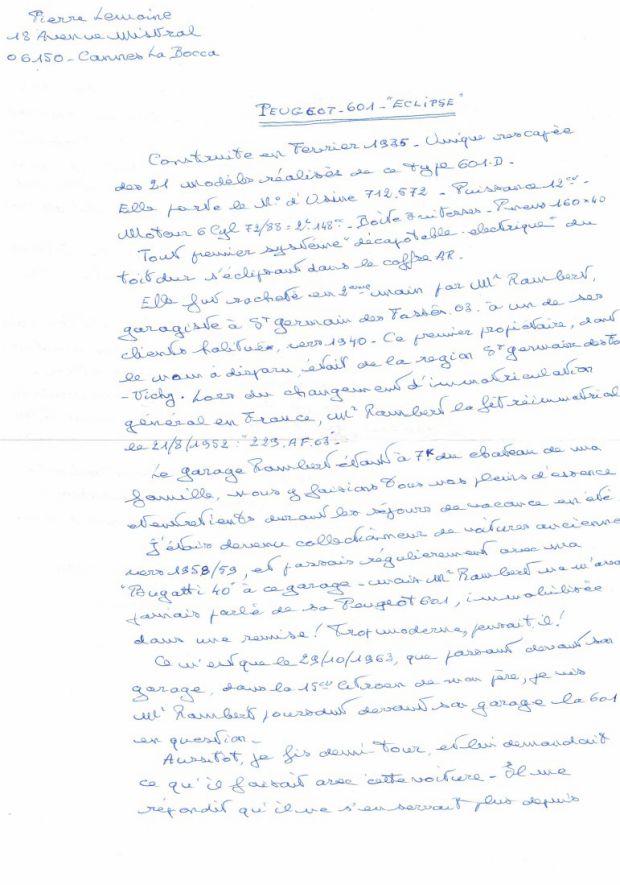 Pierre Lemoine
18 Avenue Mistral
06150 - Cannes La Bocca
PEUGEOT - 601 - "ECLIPSE"
Construite en Février 1935 - Unique rescapée
des 21 modèles réalisés de ce type 601.D.
Elle porte le N° d'Usine 712.572 - Puissance 12cv -
Moteur 6 Cyl 72/88 = 2l.148cm - Boite 3 vitesses - Pneus 160x40
Tout premier système "décapotable - electrique" du
toit dur s'éclipsant dans le coffre AR.
Elle fut racheté en 2ème main par Mr Rambert,
garagiste à St germain des Fossés. 03. à un de ses
clients habitués, vers 1940 - Ce premier propiétaire, dont
le nom à disparu, était de la region St germain des Fo
- Vichy. Lors du changement d'immatriculation
général en France, Mr Rambert la fit réimmatricul
le 21/8/1952 : "229. AF. 03".
Le garage Rambert étant à 7K du chateau de ma
famille, nous y faisions tous nos pleins d'essence
et entretients durant les séjours de vacance en été
J'étais devenu collectionneur de voitures ancienne
vers 1958/59, et passais régulierement avec ma
"Bugatti 40" à ce garage - mais Mr Rambert ne m'ava
jamais parlé de sa Peugeot 601, immobilisée
dans une remise ! Trop moderne, pensait, il !
Ce n'est que le 29/10/1963, que passant devant son
garage, dans la 15cv Citroen de mon père, je vis
Mr Rambert poussant devant son garage la 601
en question -
Aussitot, je fis demi-tour, et lui demandait
ce qu'il faisait avec cette voiture - Il me
répondit qu'il ne s'en servait plus depuis